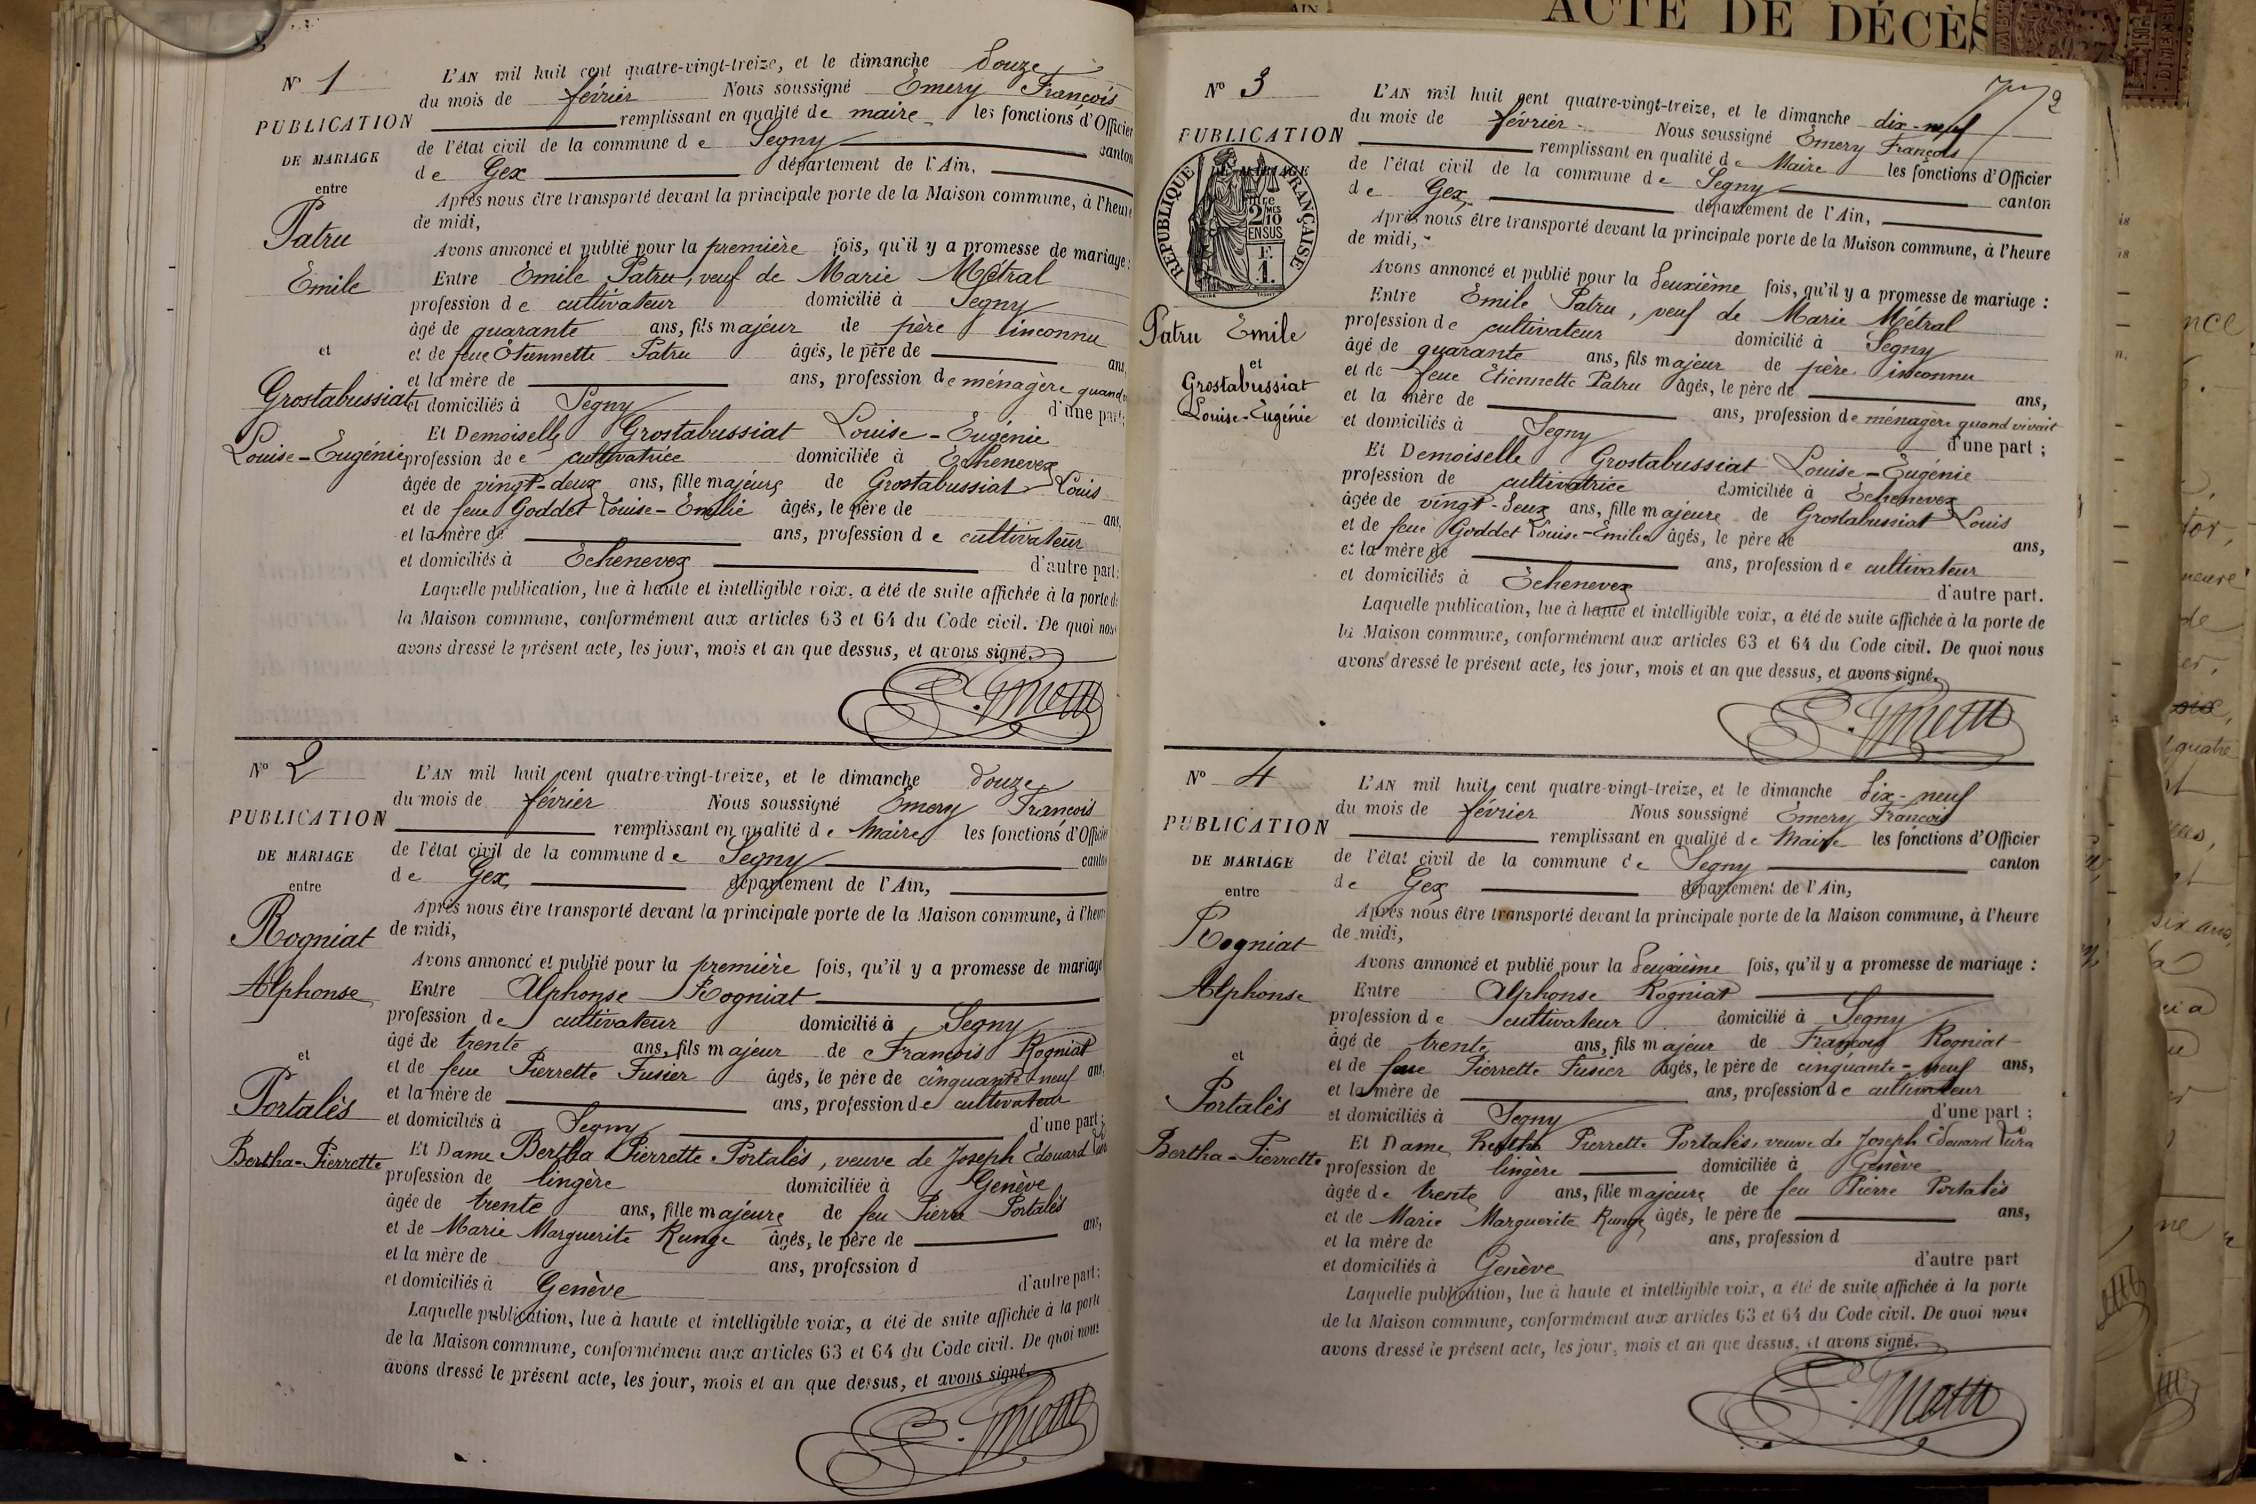 N° 1
PUBLICATION
DE MARIAGE
entre
Patru
Emile
et
Grostabussiat
Louise-Eugénie
L'AN mil huit cent quatre-vingt-treize, et le dimanche douze
du mois de février Nous soussigné Emery François
remplissant en qualité de maire les fonctions d'Officier
de l'état civil de la commune de Segny canton
de Gex département de l'Ain,
Après nous être transporté devant la principale porte de la Maison commune, à l'heure
de midi,
Avons annoncé et publié pour la première fois, qu'il y a promesse de mariage :
Entre Emile Patru, veuf de Marie Métral
profession de cultivateur domicilié à Segny
âgé de quarante ans, fils majeur de père inconnu
et de feue Etiennette Patru âgés, le père de ans,
et la mère de ans, profession de ménagère quand
et domiciliés à Segny d'une part;
Et Demoiselle Grostabussiat Louise-Eugénie
profession de cultivatrice domiciliée à Echenevex
âgée de vingt-deux ans, fille majeure de Grostabussiat Louis
et de feue Goddet Louise-Emilie âgés, le père de ans,
et la mère de ans, profession de cultivateur
et domiciliés à Echenevex d'autre part;
Laquelle publication, lue à haute et intelligible voix, a été de suite affichée à la porte de
la Maison commune, conformément aux articles 63 et 64 du Code civil. De quoi nous
avons dressé le présent acte, les jour, mois et an que dessus, et avons signé.
N° 2
PUBLICATION
DE MARIAGE
entre
Rogniat
Alphonse
et
Portalès
Bertha-Pierrette
L'AN mil huit cent quatre-vingt-treize, et le dimanche douze
du mois de février Nous soussigné Emery François
remplissant en qualité de Maire les fonctions d'Officier
de l'état civil de la commune de Segny canton
de Gex département de l'Ain,
Après nous être transporté devant la principale porte de la Maison commune, à l'heure
de midi,
Avons annoncé et publié pour la première fois, qu'il y a promesse de mariage
Entre Alphonse Rogniat
profession de cultivateur domicilié à Segny
âgé de trente ans, fils majeur de François Rogniat
et de feue Pierrette Fusier âgés, le père de cinquante-neuf ans,
et la mère de ans, profession de cultivateur
et domiciliés à Segny d'une part;
Et Dame Bertha Pierrette Portalès, veuve de Joseph Edouard
profession de lingère domiciliée à Genève
âgée de trente ans, fille majeure de feu Pierre Portalès
et de Marie Marguerite Runge âgés, le père de ans,
et la mère de ans, profession d
et domiciliés à Genève d'autre part;
Laquelle publication, lue à haute et intelligible voix, a été de suite affichée à la porte
de la Maison commune, conformément aux articles 63 et 64 du Code civil. De quoi nous
avons dressé le présent acte, les jour, mois et an que dessus, et avons signé.
ACTE DE DÉCÈS
2
N° 3
PUBLICATION
DE MARIAGE
entre
RÉPUBLIQUE FRANÇAISE
2/10
EN SUS
F.
1.
Patru Emile
et
Grostabussiat
Louise-Eugénie
L'AN mil huit cent quatre-vingt-treize, et le dimanche dix-neuf
du mois de février Nous soussigné Emery François
remplissant en qualité de Maire les fonctions d'Officier
de l'état civil de la commune de Segny canton
de Gex département de l'Ain,
Après nous être transporté devant la principale porte de la Maison commune, à l'heure
de midi,
Avons annoncé et publié pour la deuxième fois, qu'il y a promesse de mariage :
Entre Emile Patru, veuf de Marie Métral
profession de cultivateur domicilié à Segny
âgé de quarante ans, fils majeur de père inconnu
et de feue Etiennette Patru âgés, le père de ans,
et la mère de ans, profession de ménagère quand vivait
et domiciliés à Segny d'une part ;
Et Demoiselle Grostabussiat Louise-Eugénie
profession de cultivatrice domiciliée à Echenevex
âgée de vingt-deux ans, fille majeure de Grostabussiat Louis
et de feue Goddet Louise-Emilie âgés, le père de ans,
et la mère de ans, profession de cultivateur
et domiciliés à Echenevex d'autre part.
Laquelle publication, lue à haute et intelligible voix, a été de suite affichée à la porte de
la Maison commune, conformément aux articles 63 et 64 du Code civil. De quoi nous
avons dressé le présent acte, les jour, mois et an que dessus, et avons signé.
N° 4
PUBLICATION
DE MARIAGE
entre
Rogniat
Alphonse
et
Portalès
Bertha-Pierrette
L'AN mil huit cent quatre-vingt-treize, et le dimanche dix-neuf
du mois de février Nous soussigné Emery François
remplissant en qualité de Maire les fonctions d'Officier
de l'état civil de la commune de Segny canton
de Gex département de l'Ain,
Après nous être transporté devant la principale porte de la Maison commune, à l'heure
de midi,
Avons annoncé et publié pour la deuxième fois, qu'il y a promesse de mariage :
Entre Alphonse Rogniat
profession de cultivateur domicilié à Segny
âgé de trente ans, fils majeur de François Rogniat
et de feue Pierrette Fusier âgés, le père de cinquante-neuf ans,
et la mère de ans, profession de cultivateur
et domiciliés à Segny d'une part ;
Et Dame Bertha Pierrette Portalès, veuve de Joseph Edouard
profession de lingère domiciliée à Genève
âgée de trente ans, fille majeure de feu Pierre Portalès
et de Marie Marguerite Runge âgés, le père de ans,
et la mère de ans, profession d
et domiciliés à Genève d'autre part
Laquelle publication, lue à haute et intelligible voix, a été de suite affichée à la porte
de la Maison commune, conformément aux articles 63 et 64 du Code civil. De quoi nous
avons dressé le présent acte, les jour, mois et an que dessus, et avons signé.